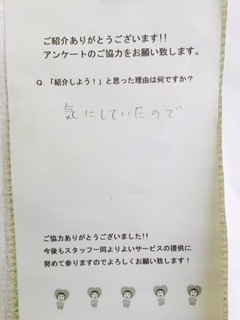 ご紹介ありがとうございます!!
アンケートのご協力をお願い致します。
Q.「紹介しよう!」と思った理由は何ですか?
気にしていたので
ご協力ありがとうございました!!
今後もスタッフ一同よりよいサービスの提供に
努めて参りますのでよろしくお願い致します!